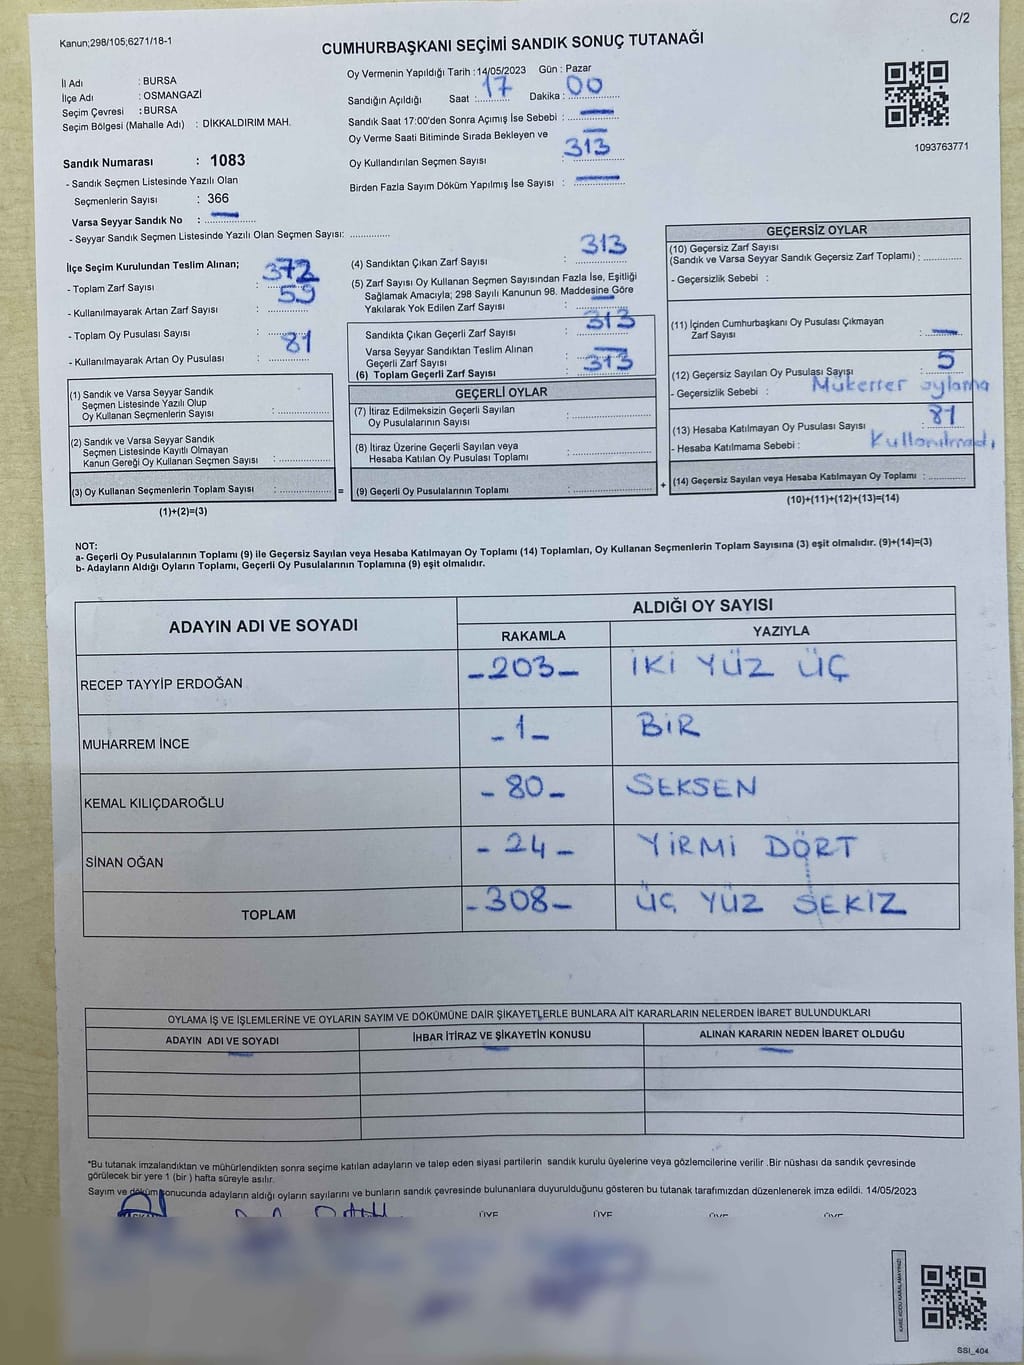 C/2
Kanun;298/105;6271/18-1
CUMHURBAŞKANI SEÇİMİ SANDIK SONUÇ TUTANAĞI
İl Adı : BURSA
İlçe Adı : OSMANGAZİ
Seçim Çevresi : BURSA
Seçim Bölgesi (Mahalle Adı) : DİKKALDIRIM MAH.
Oy Vermenin Yapıldığı Tarih :14/05/2023 Gün : Pazar
Sandığın Açıldığı Saat : 17 Dakika : 00
Sandık Saat 17:00'den Sonra Açımış İse Sebebi : —
Oy Verme Saati Bitiminde Sırada Bekleyen ve
Oy Kullandırılan Seçmen Sayısı : 313
Birden Fazla Sayım Döküm Yapılmış İse Sayısı : —
1093763771
Sandık Numarası : 1083
- Sandık Seçmen Listesinde Yazılı Olan
Seçmenlerin Sayısı : 366
Varsa Seyyar Sandık No : —
- Seyyar Sandık Seçmen Listesinde Yazılı Olan Seçmen Sayısı: ..............
İlçe Seçim Kurulundan Teslim Alınan;
- Toplam Zarf Sayısı : 372
- Kullanılmayarak Artan Zarf Sayısı : 59
- Toplam Oy Pusulası Sayısı :
- Kullanılmayarak Artan Oy Pusulası : 81
(1) Sandık ve Varsa Seyyar Sandık
Seçmen Listesinde Yazılı Olup
Oy Kullanan Seçmenlerin Sayısı :
(2) Sandık ve Varsa Seyyar Sandık
Seçmen Listesinde Kayıtlı Olmayan
Kanun Gereği Oy Kullanan Seçmen Sayısı :
(3) Oy Kullanan Seçmenlerin Toplam Sayısı : =
(1)+(2)=(3)
(4) Sandıktan Çıkan Zarf Sayısı : 313
(5) Zarf Sayısı Oy Kullanan Seçmen Sayısından Fazla İse, Eşitliği
Sağlamak Amacıyla; 298 Sayılı Kanunun 98. Maddesine Göre
Yakılarak Yok Edilen Zarf Sayısı : —
Sandıkta Çıkan Geçerli Zarf Sayısı : 313
Varsa Seyyar Sandıktan Teslim Alınan
Geçerli Zarf Sayısı : —
(6) Toplam Geçerli Zarf Sayısı : 313
GEÇERLİ OYLAR
(7) İtiraz Edilmeksizin Geçerli Sayılan
Oy Pusulalarının Sayısı :
(8) İtiraz Üzerine Geçerli Sayılan veya
Hesaba Katılan Oy Pusulası Toplamı :
(9) Geçerli Oy Pusulalarının Toplamı : +
GEÇERSİZ OYLAR
(10) Geçersiz Zarf Sayısı
(Sandık ve Varsa Seyyar Sandık Geçersiz Zarf Toplamı) :
- Geçersizlik Sebebi :
(11) İçinden Cumhurbaşkanı Oy Pusulası Çıkmayan
Zarf Sayısı : —
(12) Geçersiz Sayılan Oy Pusulası Sayısı : 5
- Geçersizlik Sebebi : Mükerrer oylama
(13) Hesaba Katılmayan Oy Pusulası Sayısı : 81
- Hesaba Katılmama Sebebi : Kullanılmadı
(14) Geçersiz Sayılan veya Hesaba Katılmayan Oy Toplamı :
(10)+(11)+(12)+(13)=(14)
NOT:
a- Geçerli Oy Pusulalarının Toplamı (9) ile Geçersiz Sayılan veya Hesaba Katılmayan Oy Toplamı (14) Toplamları, Oy Kullanan Seçmenlerin Toplam Sayısına (3) eşit olmalıdır. (9)+(14)=(3)
b- Adayların Aldığı Oyların Toplamı, Geçerli Oy Pusulalarının Toplamına (9) eşit olmalıdır.
ADAYIN ADI VE SOYADI
ALDIĞI OY SAYISI
RAKAMLA YAZIYLA
RECEP TAYYİP ERDOĞAN -203- İKİ YÜZ ÜÇ
MUHARREM İNCE -1- BİR
KEMAL KILIÇDAROĞLU -80- SEKSEN
SİNAN OĞAN -24- YİRMİ DÖRT
TOPLAM -308- ÜÇ YÜZ SEKİZ
OYLAMA İŞ VE İŞLEMLERİNE VE OYLARIN SAYIM VE DÖKÜMÜNE DAİR ŞİKAYETLERLE BUNLARA AİT KARARLARIN NELERDEN İBARET BULUNDUKLARI
ADAYIN ADI VE SOYADI İHBAR İTİRAZ VE ŞİKAYETİN KONUSU ALINAN KARARIN NEDEN İBARET OLDUĞU
— — —
*Bu tutanak imzalandıktan ve mühürlendikten sonra seçime katılan adayların ve talep eden siyasi partilerin sandık kurulu üyelerine veya gözlemcilerine verilir .Bir nüshası da sandık çevresinde
görülecek bir yere 1 (bir ) hafta süreyle asılır.
Sayım ve döküm sonucunda adayların aldığı oyların sayılarını ve bunların sandık çevresinde bulunanlara duyurulduğunu gösteren bu tutanak tarafımızdan düzenlenerek imza edildi. 14/05/2023
ÜYE ÜYE ÜYE ÜYE
SSI_404